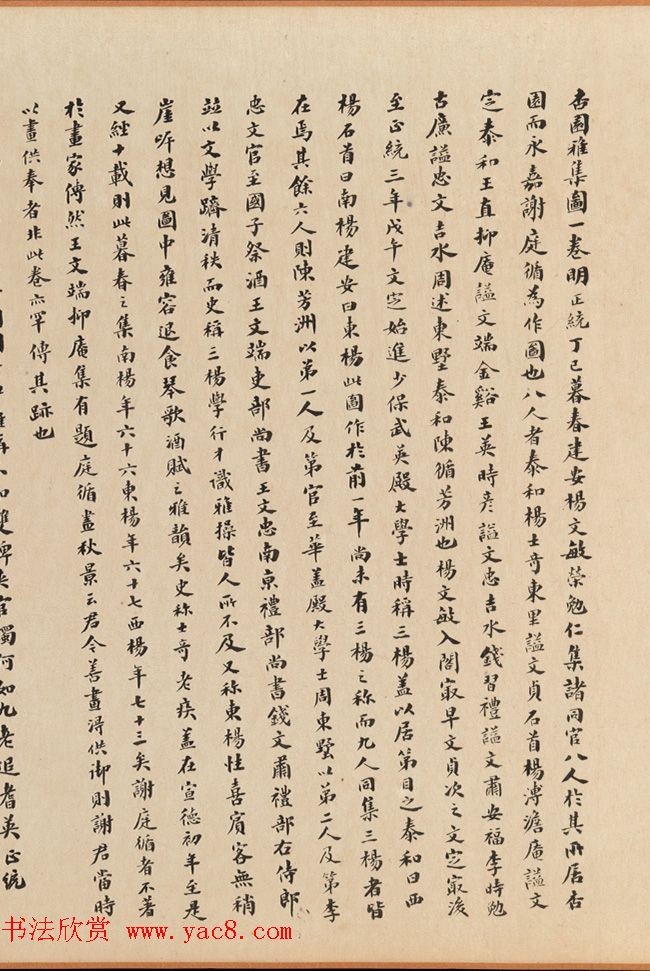 杏園雅集圖一卷明正統丁巳暮春建安楊文敏榮勉仁集諸同官八人於其所居杏
園而永嘉謝庭循為作圖也八人者泰和楊士奇東里謚文貞石首楊溥澹庵謚文
定泰和王直抑庵謚文端金谿王英時彥謚文忠吉水錢習禮謚文肅安福李時勉
古廉謚忠文吉水周述東墅泰和陳循芳洲也楊文敏入閣最早文貞次之文定最後
至正統三年戊午文定始進少保武英殿大學士時稱三楊蓋以居第目之泰和曰西
楊石首曰南楊建安曰東楊此圖作於前一年尚未有三楊之称而九人同集三楊者皆
在焉其餘六人則陳芳洲以第一人及第官至華蓋殿大學士周東墅以第二人及第李
忠文官至國子祭酒王文端吏部尚書王文忠南京禮部尚書錢文肅禮部右侍郎
並以文學躋清秩而史稱三楊學行才識雅操皆人所不及又称東楊性喜賓客無稍
崖岸想見圖中雍容退食琴歌酒賦之雅韻矣史称士奇老疾蓋在宣德初年至是
又經十載則此暮春之集南楊年六十六東楊年六十七西楊年七十三矣謝庭循者不著
於畫家傳然王文端抑庵集有題庭循畫秋景云君今善畫淂供御則謝君當時
以畫供奉者非此卷亦罕傳其跡也
官獨何如九老追耆英正統
书法欣赏 www.yac8.com